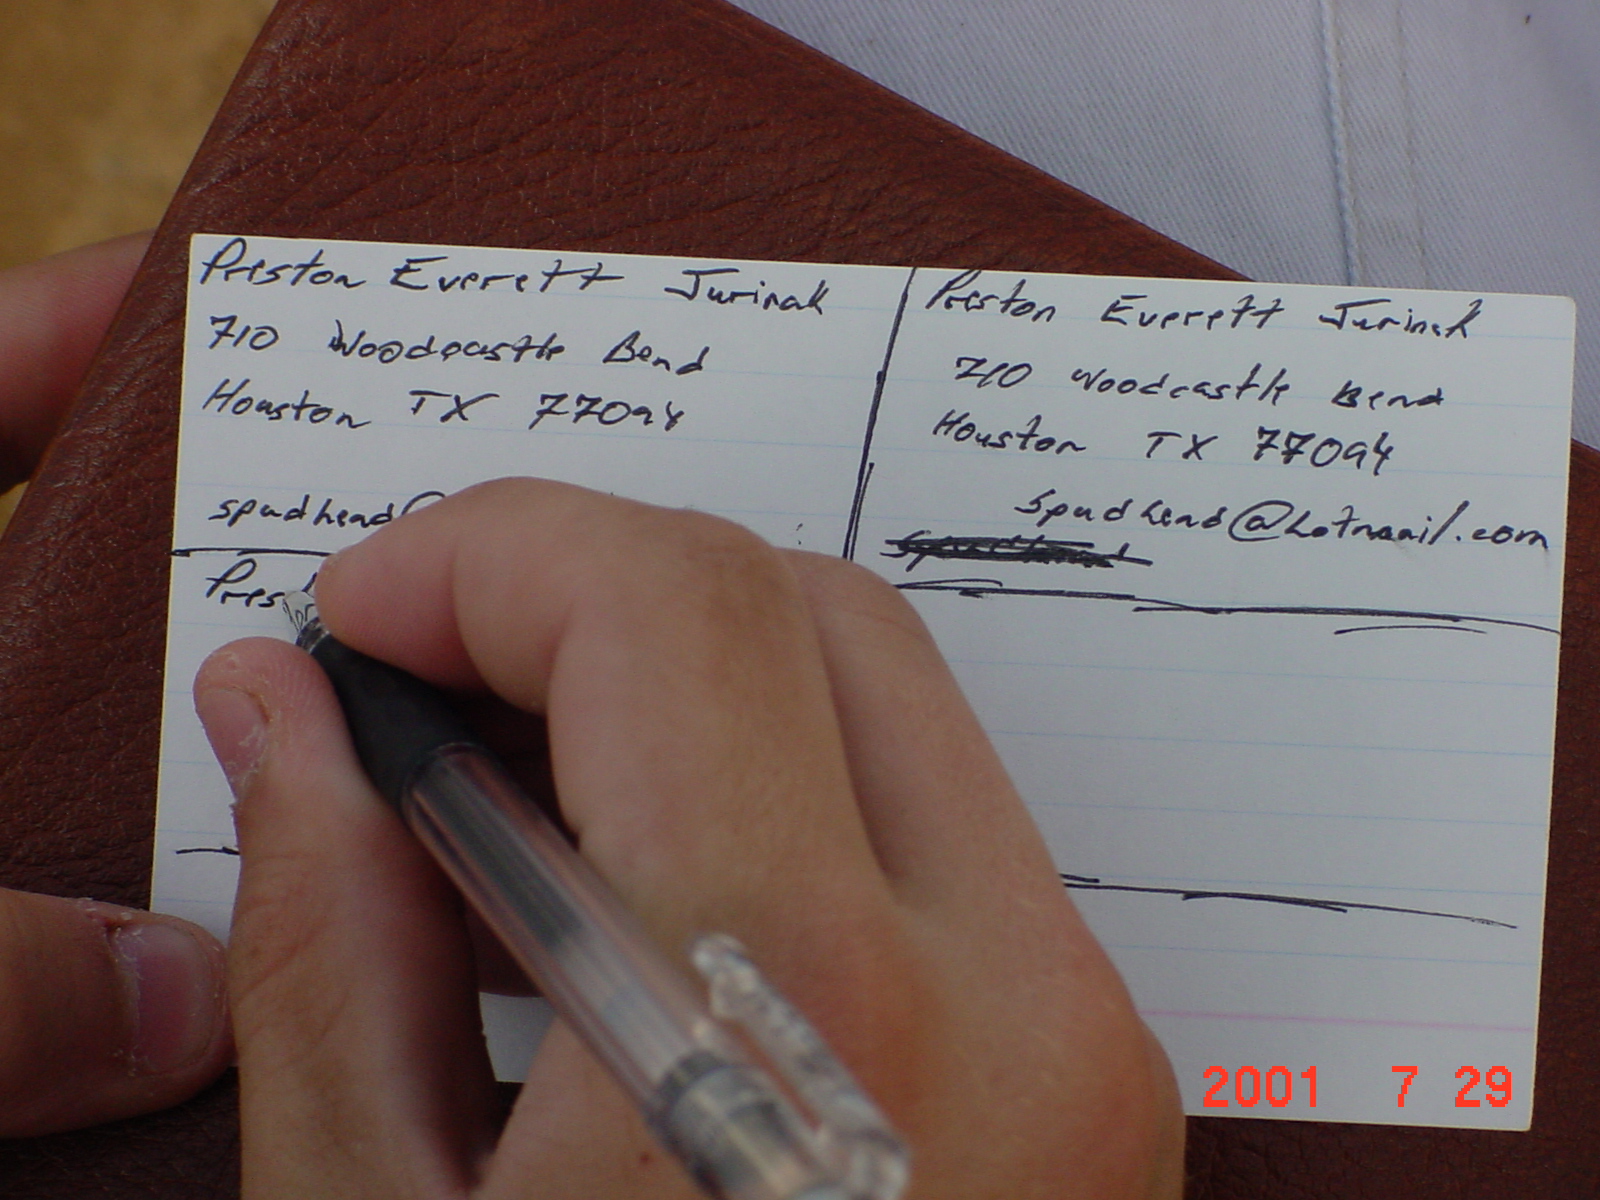 Preston Everett Jurinak
710 Woodcastle Bend
Houston TX 77094
spudhead@
Pres
Preston Everett Jurinak
710 Woodcastle Bend
Houston TX 77094
Spudhead@hotmail.com
2001 7 29